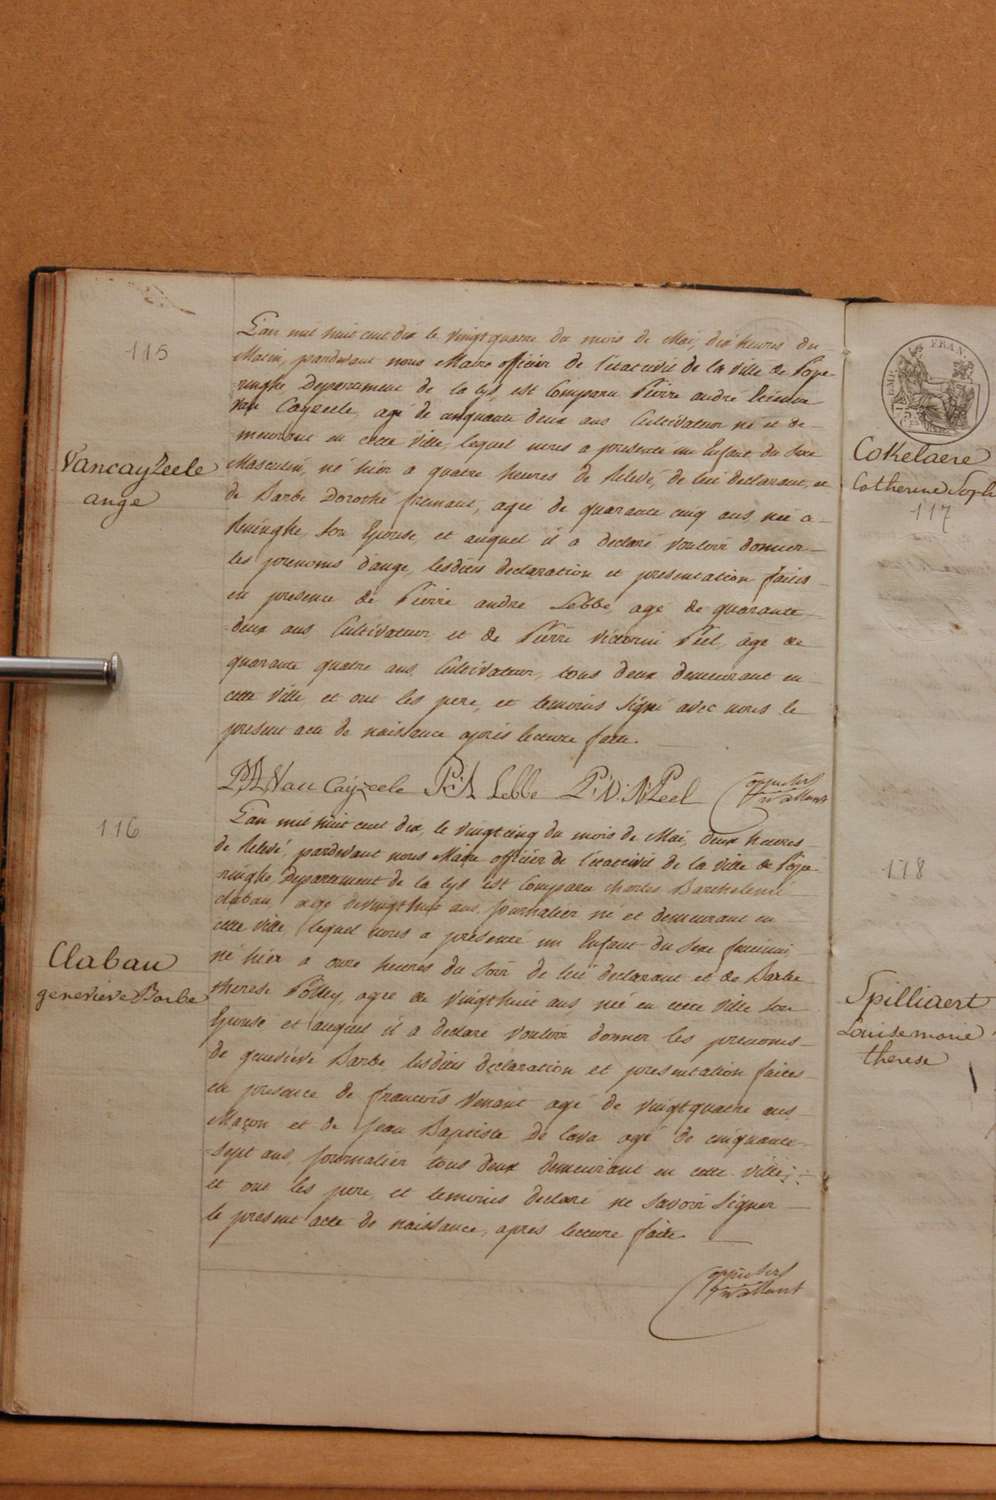 115
Vancayzeele
ange
L'an mil huit cent dix le vingt quatre du mois de Mai, dix heures du
Matin, pardevant nous Maire officier de l'etat civil de la ville de Pope-
ringhe Departement de la Lys, est Comparu Pierre andre
van Cayzeele, agé de cinquante deux ans Cultivateur né et de-
meurant en cette ville, lequel nous a presenté un Enfant du Sexe
Masculin, né hier a quatre heures de Relevé, de lui declarant, et
de Barbe Dorothé fremaut, agée de quarante cinq ans, née a
Reninghe, Son Epouse, et auquel il a declaré vouloir donner
les prenoms d'ange, lesdites declaration et presentation faites
en presence de Pierre andre Lebbe, agé de quarante
deux ans Cultivateur et de Pierre victorin Peel, agé de
quarante quatre ans, Cultivateur, tous deux demeurant en
cette ville, et ont les pere, et temoins Signé avec nous le
present acte de naissance après lecture faite.
P:A Van Cayzeele P:A Lebbe P:V: Peel
116
Clabau
genevieve Barbe
L'an mil huit cent dix, le vingt cinq du mois de Mai, deux heures
de Relevé, pardevant nous Maire officier de l'etat civil de la ville de Pope-
ringhe, Departement de la Lys est Comparu Charles Barthelemi
clabau, agé de vingt huit ans, Journalier né et demeurant en
cette ville, lequel nous a presenté un Enfant du Sexe feminin,
né hier a onze heures du Soir de lui declarant et de Barbe
therese agée de vingt huit ans née en cette ville Son
Epouse et auquel il a declaré vouloir donner les prenoms
de genevieve Barbe, lesdites declaration et presentation faites
en presence de francois Venant agé de vingt quatre ans,
Maçon et de Jean Baptiste de Cava agé de cinquante
-sept ans, Journalier tous deux demeurant en cette ville;
et ont les pere, et temoins declaré ne Savoir Signer
le present acte de naissance, après lecture faite.
EMP. FRAN.
Cokelaere
Catherine Soph
117
118
Spilliaert
Louise marie
therese